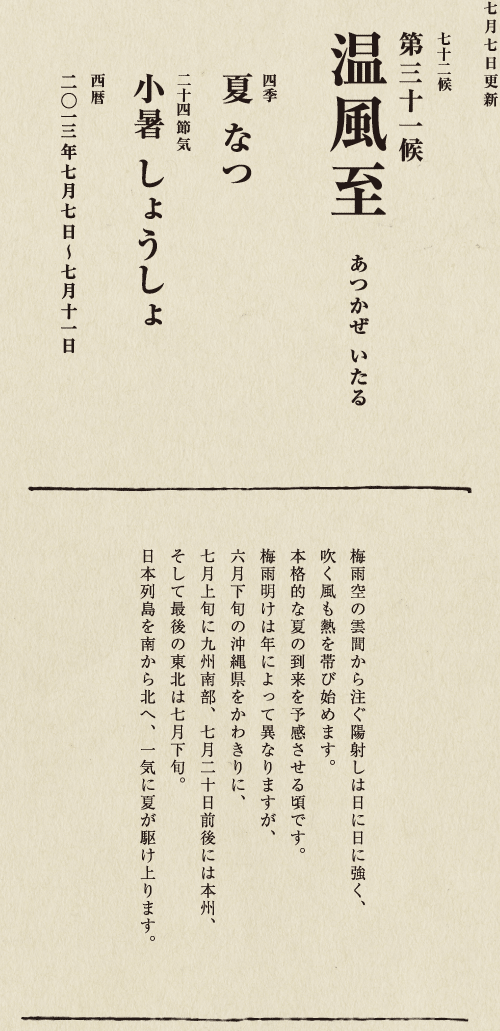 七月七日更新
七十二候
第三十一候
温風至 あつかぜ いたる
四季
夏 なつ
二十四節気
小暑 しょうしょ
西暦
二〇一三年七月七日〜七月十一日
梅雨空の雲間から注ぐ陽射しは日に日に強く、
吹く風も熱を帯び始めます。
本格的な夏の到来を予感させる頃です。
梅雨明けは年によって異なりますが、
六月下旬の沖縄県をかわきりに、
七月上旬に九州南部、七月二十日前後には本州、
そして最後の東北は七月下旬。
日本列島を南から北へ、一気に夏が駆け上ります。